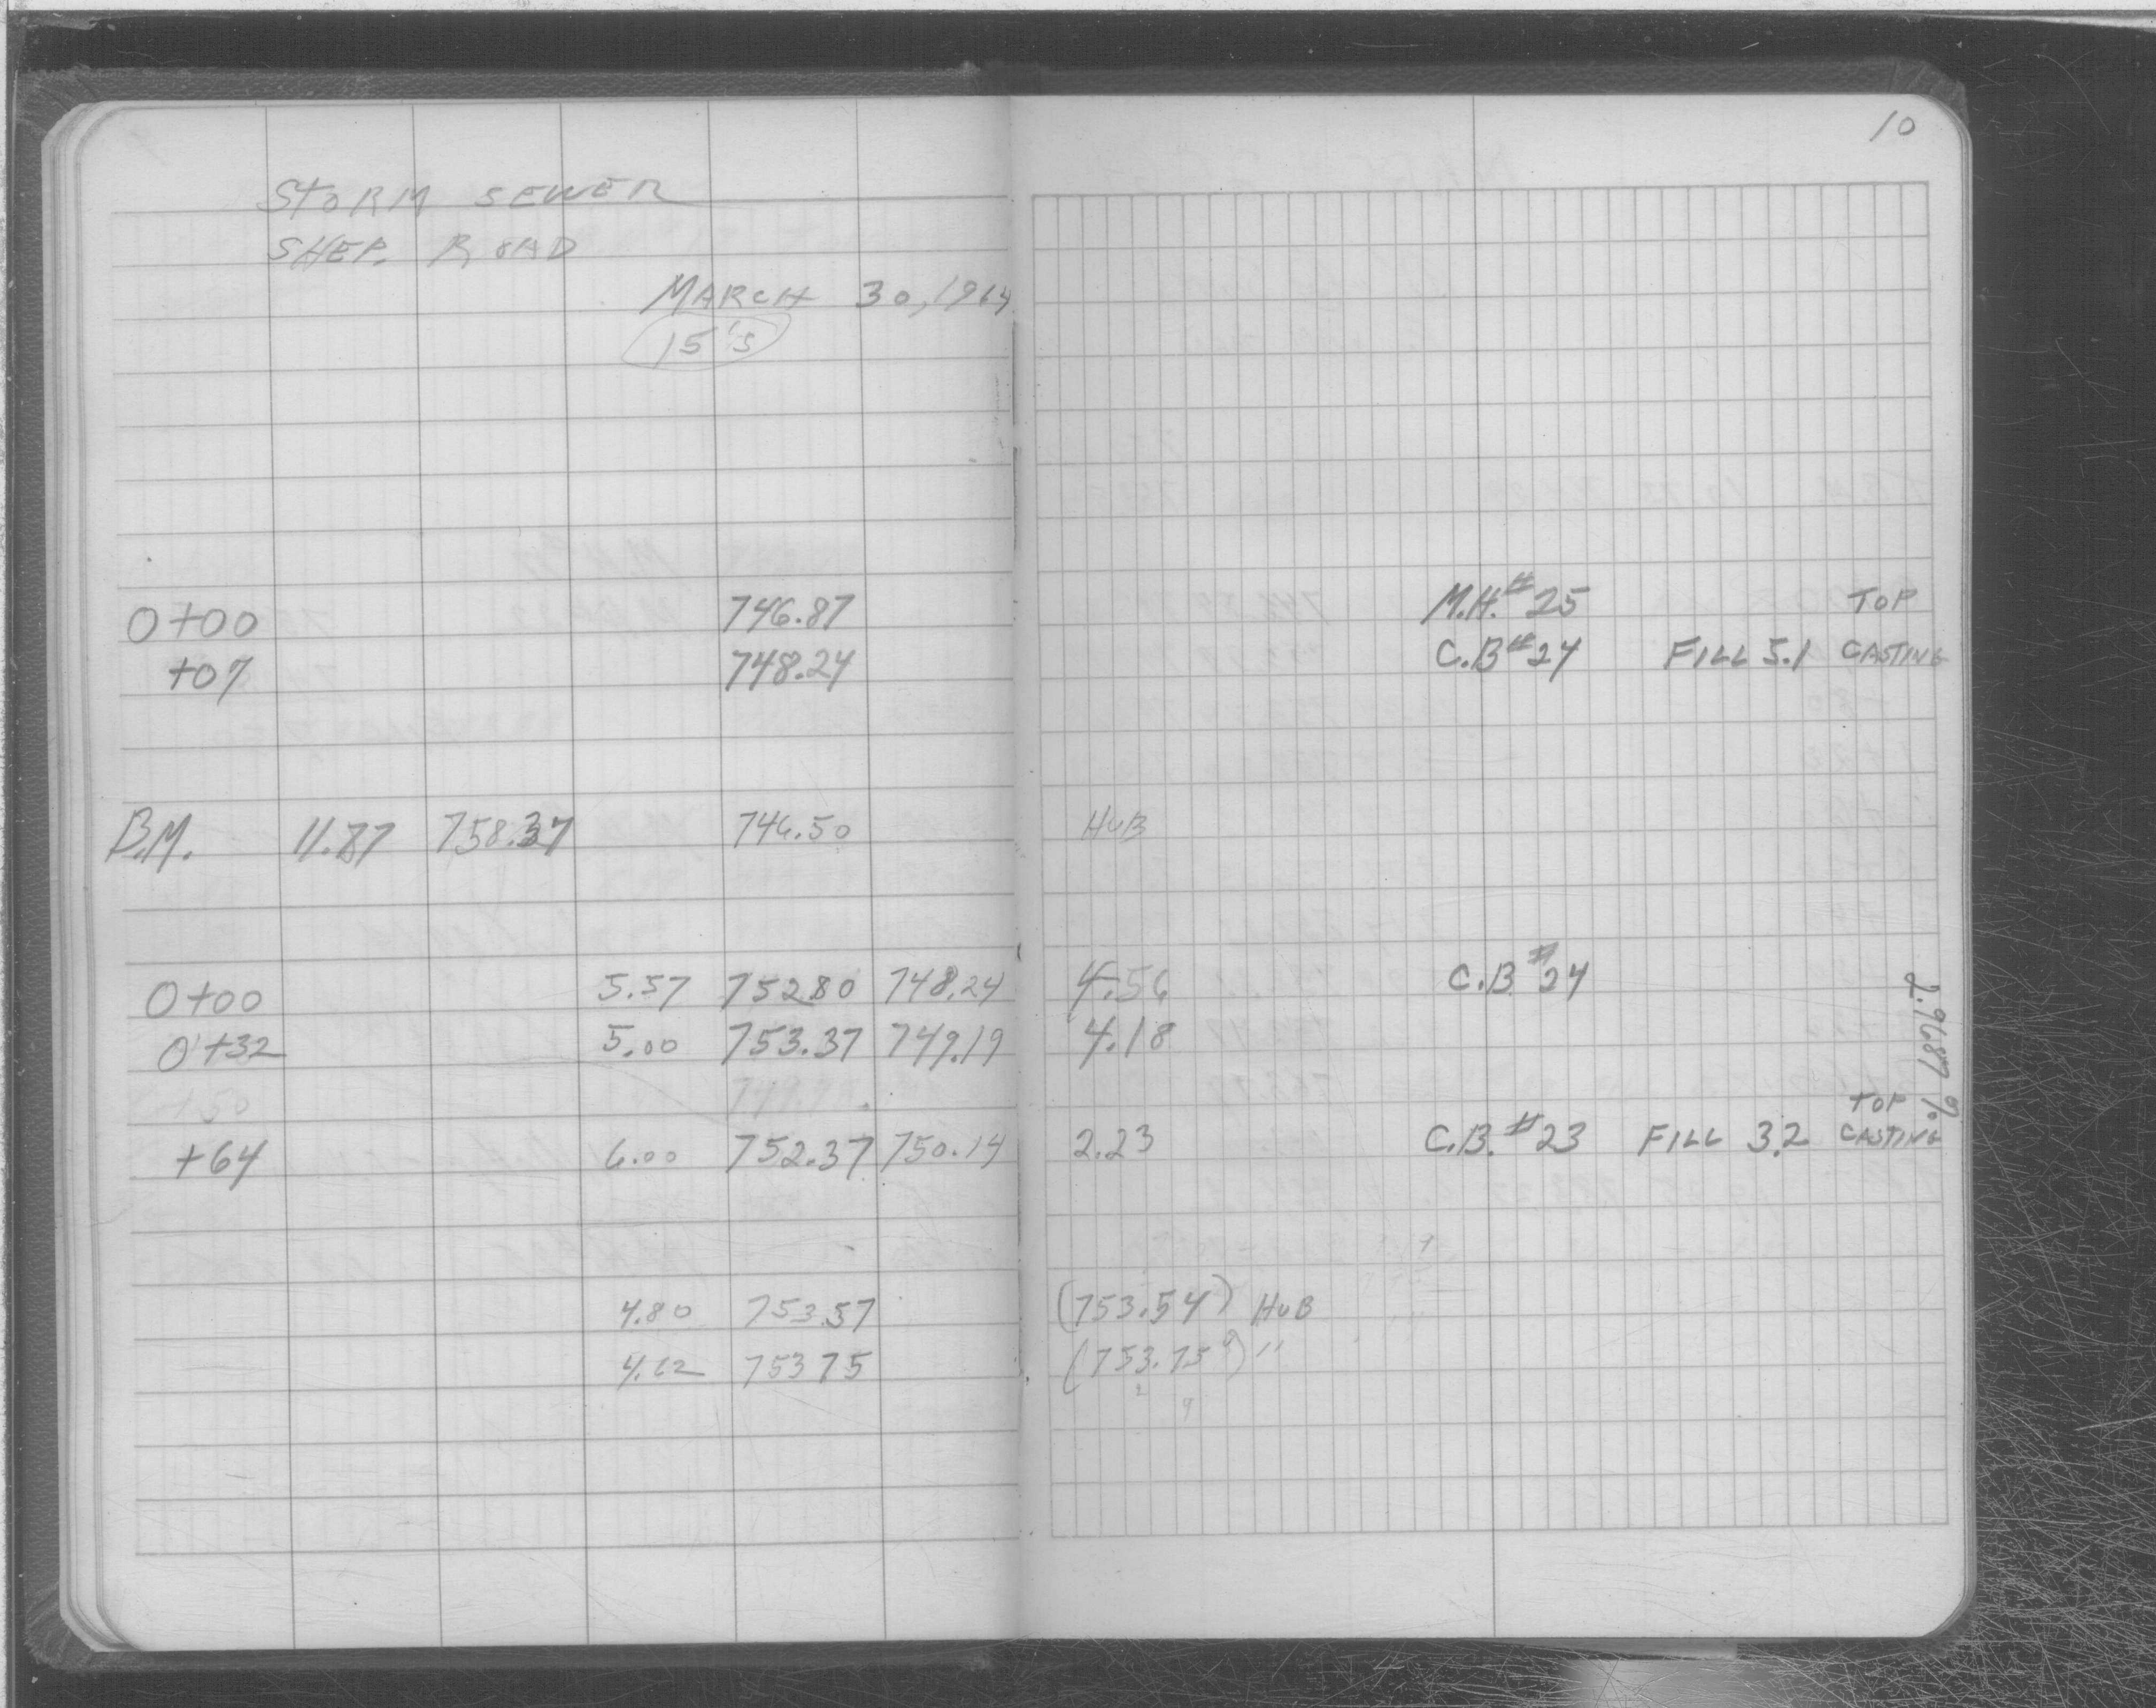 10
STORM SEWER
SHEP. ROAD
MARCH 30, 1964
15's
0+00 746.87 M.H. #25 TOP
+07 748.24 C.B #24 FILL 5.1 CASTING
B.M. 11.87 758.37 746.50 HUB
0+00 5.57 752.80 748.24 4.56 C.B. #24
0+32 5.00 753.37 749.19 4.18
2.9687 %
+50
TOP
+64 6.00 752.37 750.14 2.23 C.B. #23 FILL 3.2 CASTING
4.80 753.57 (753.54) HUB
4.62 753 75 (753.75) "